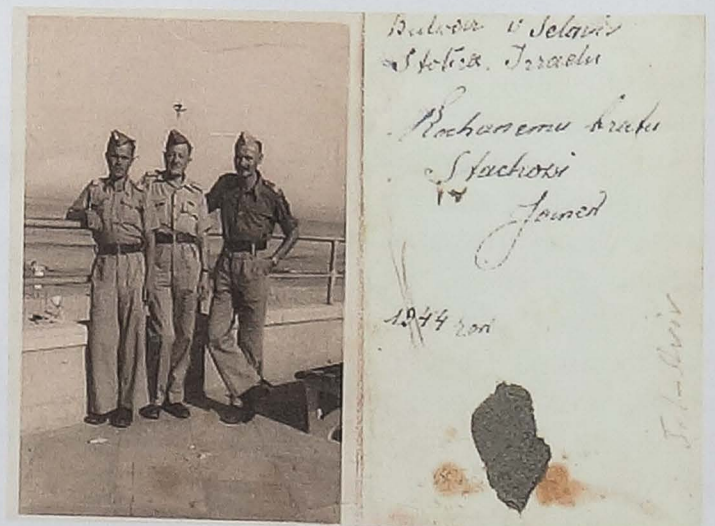 Bulwar v Selaviv
Stolica Izraelu
Kochanemu bratu
Stachowi
1944 rok
Tel-Aviv